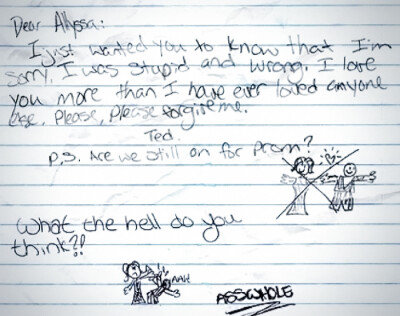 Dear Allyssa:
I just wanted you to know that I'm
sorry, I was stupid and wrong. I love
you more than I have ever loved anyone
else. Please, Please, Please forgive me.
Ted.
P.S. Are we still on for prom?
What the hell do you
think?!
AAH!
ASSWHOLE